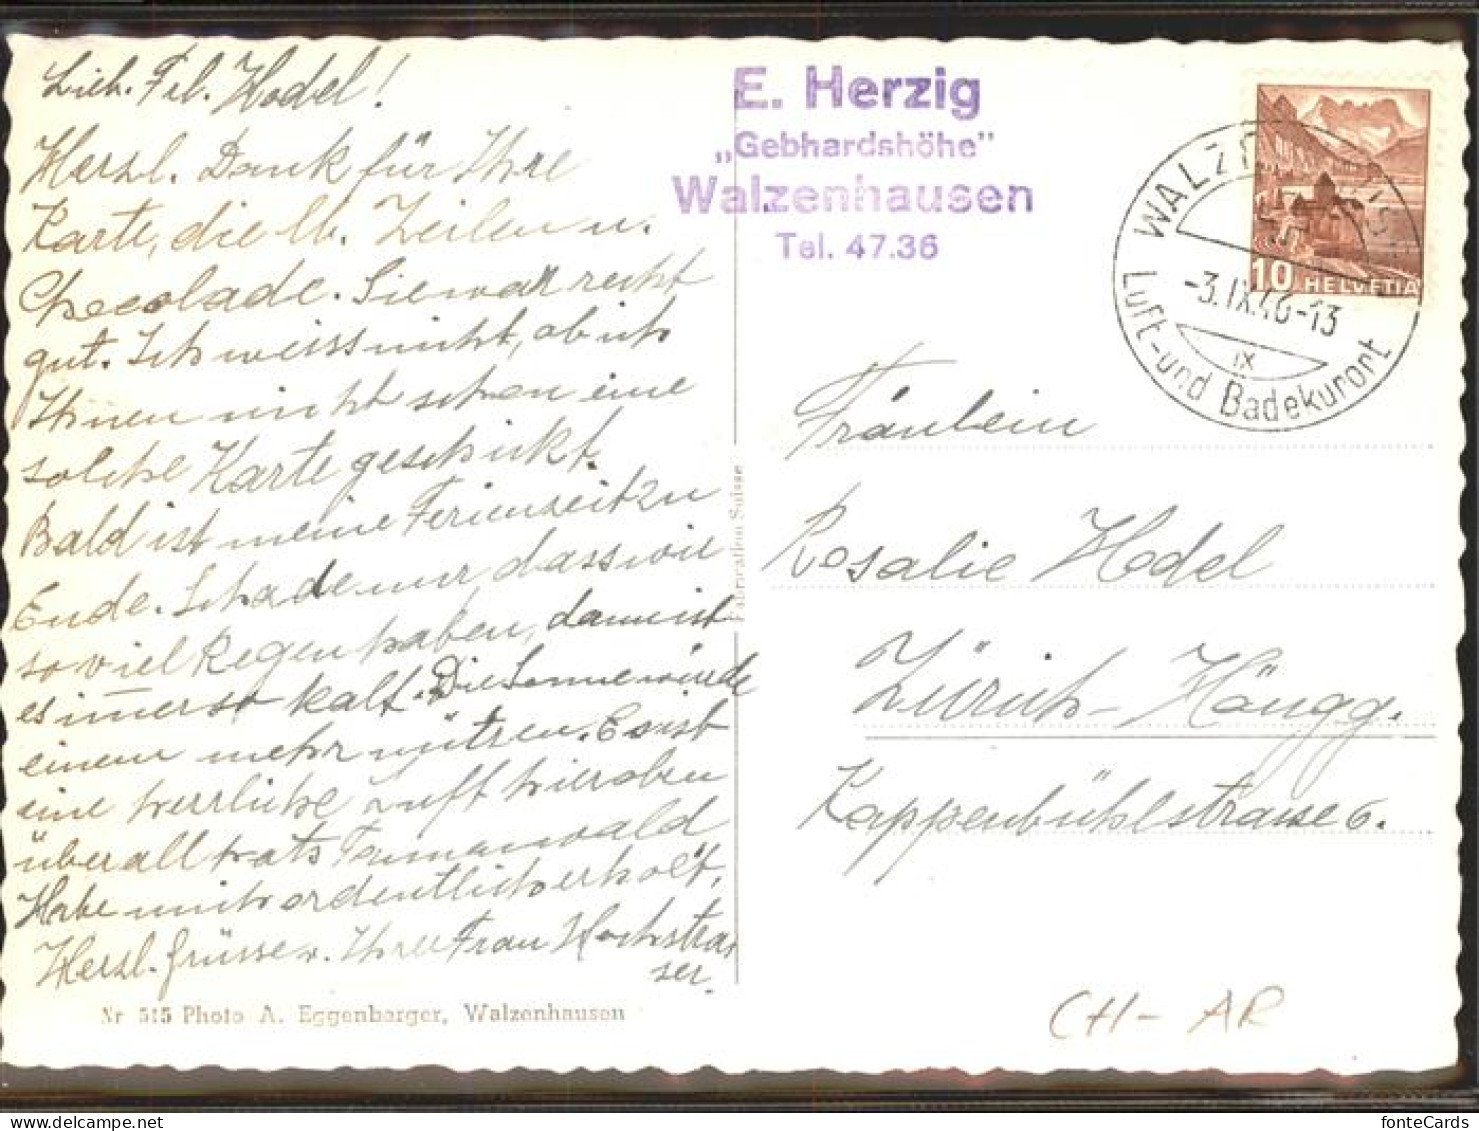 Lieb. Frl. Hodel!
Herzl. Dank für Ihre
Karte, die lb. Zeilen u.
Chocolade. Sie war recht
gut. Ich weiss nicht, ob ich
Ihnen nicht schon eine
solche Karte geschickt.
Bald ist meine Ferienzeit zu
Ende. Schade nur dass wir
so viel Regen haben, dann ist
es immer so kalt. Die Sonne würde
einem mehr nützen. Es ist
eine herrliche Luft hier oben
überall hats Tannenwald
Habe mich ordentlich erholt,
Herzl. Grüsse v. Ihrer Frau Hochstras
ser.
Nr 515 Photo A. Eggenberger, Walzenhausen
Fabrication Suisse
E. Herzig
„Gebhardshöhe"
Walzenhausen
Tel. 47.36
10 HELVETIA
-3.IX.46-13
IX
Luft-und Badekurort
Fräulein
Rosalie Hodel
Zürich-Höngg.
Kappenbühlstrasse 6.
CH-AR
fonteCards